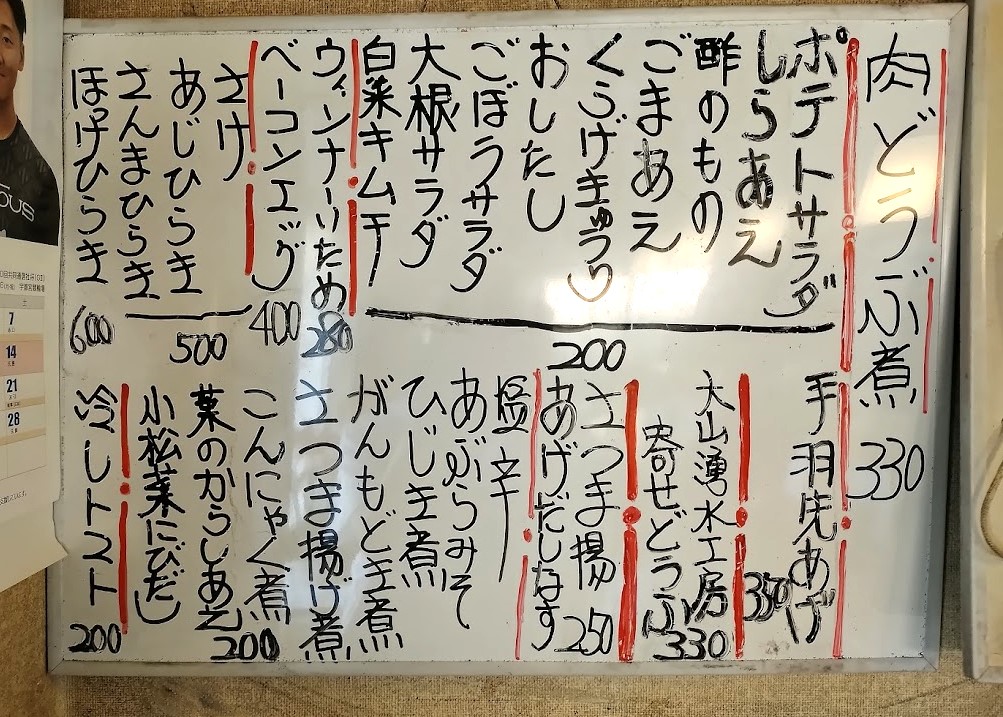 肉どうふ煮 330
ポテトサラダ
しらあえ
酢のもの
ごまあえ
くらげきゅうり
おしたし
ごぼうサラダ
大根サラダ
白菜キムチ
200
ウィンナーいため 280
ベーコンエッグ 400
さけ
あじひらき
さんまひらき
500
ほっけひらき 600
手羽先あげ 350
大山湧水工房
寄せどうふ 330
さつま揚 250
あげだしなす
塩辛
あぶらみそ
ひじき煮
がんもどき煮
さつま揚げ煮
こんにゃく煮
菜のからしあえ
小松菜にびたし
200
冷しトマト 200
7
14
21
28